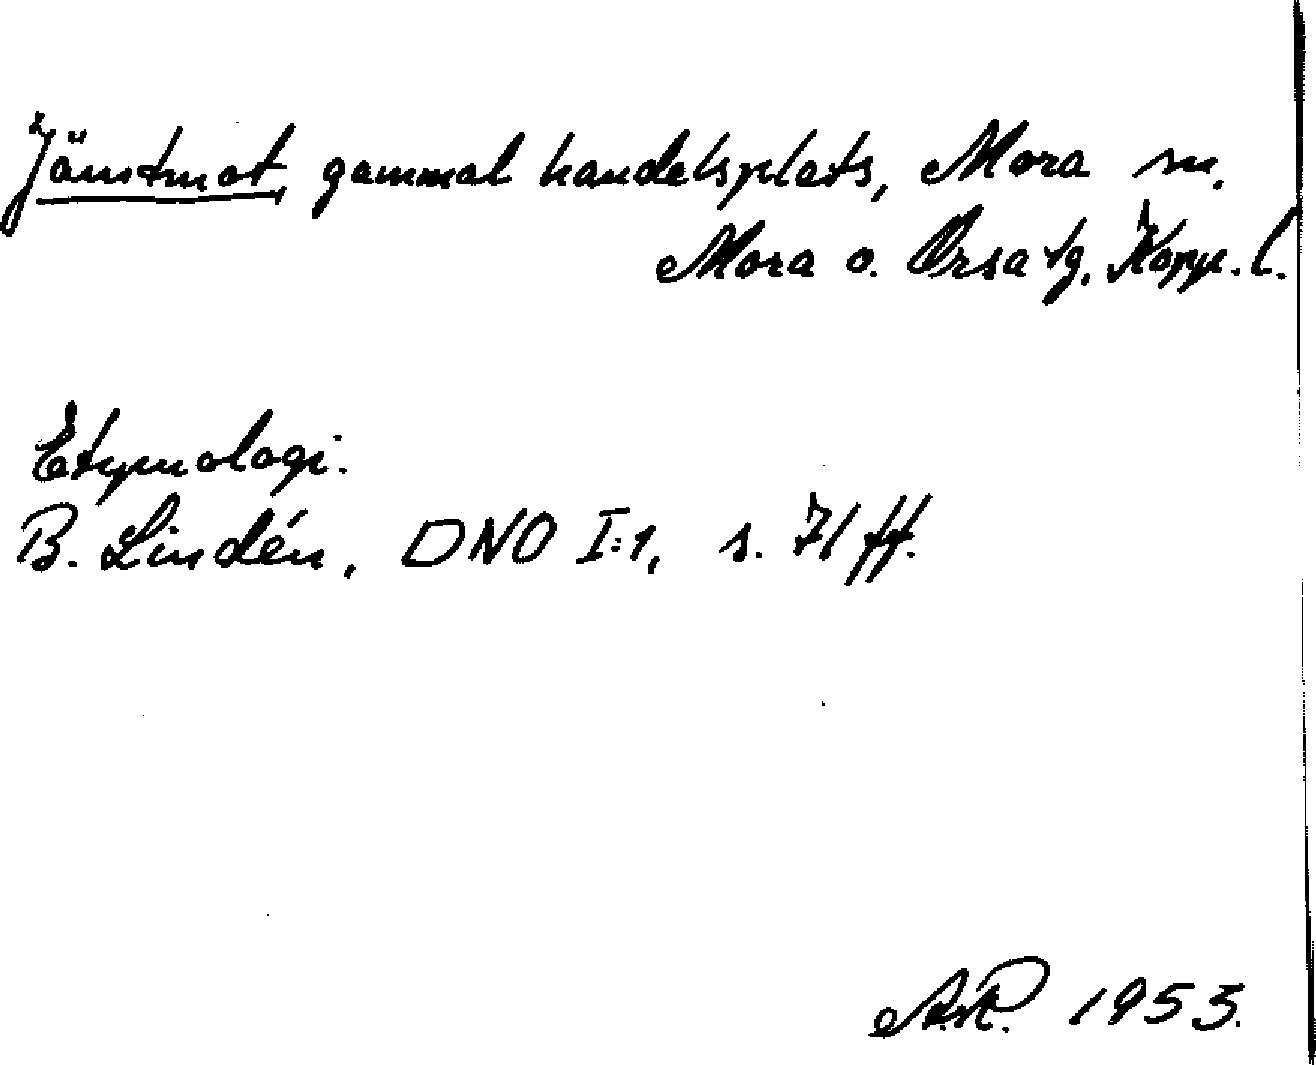 Jämtmot, gammal handelsplats, Mora sn.
Mora o. Orsa tg, Kopp. l.
Etymologi.
B. Lindén, DNO I:1, s. 71 ff.
A.R. 1953.